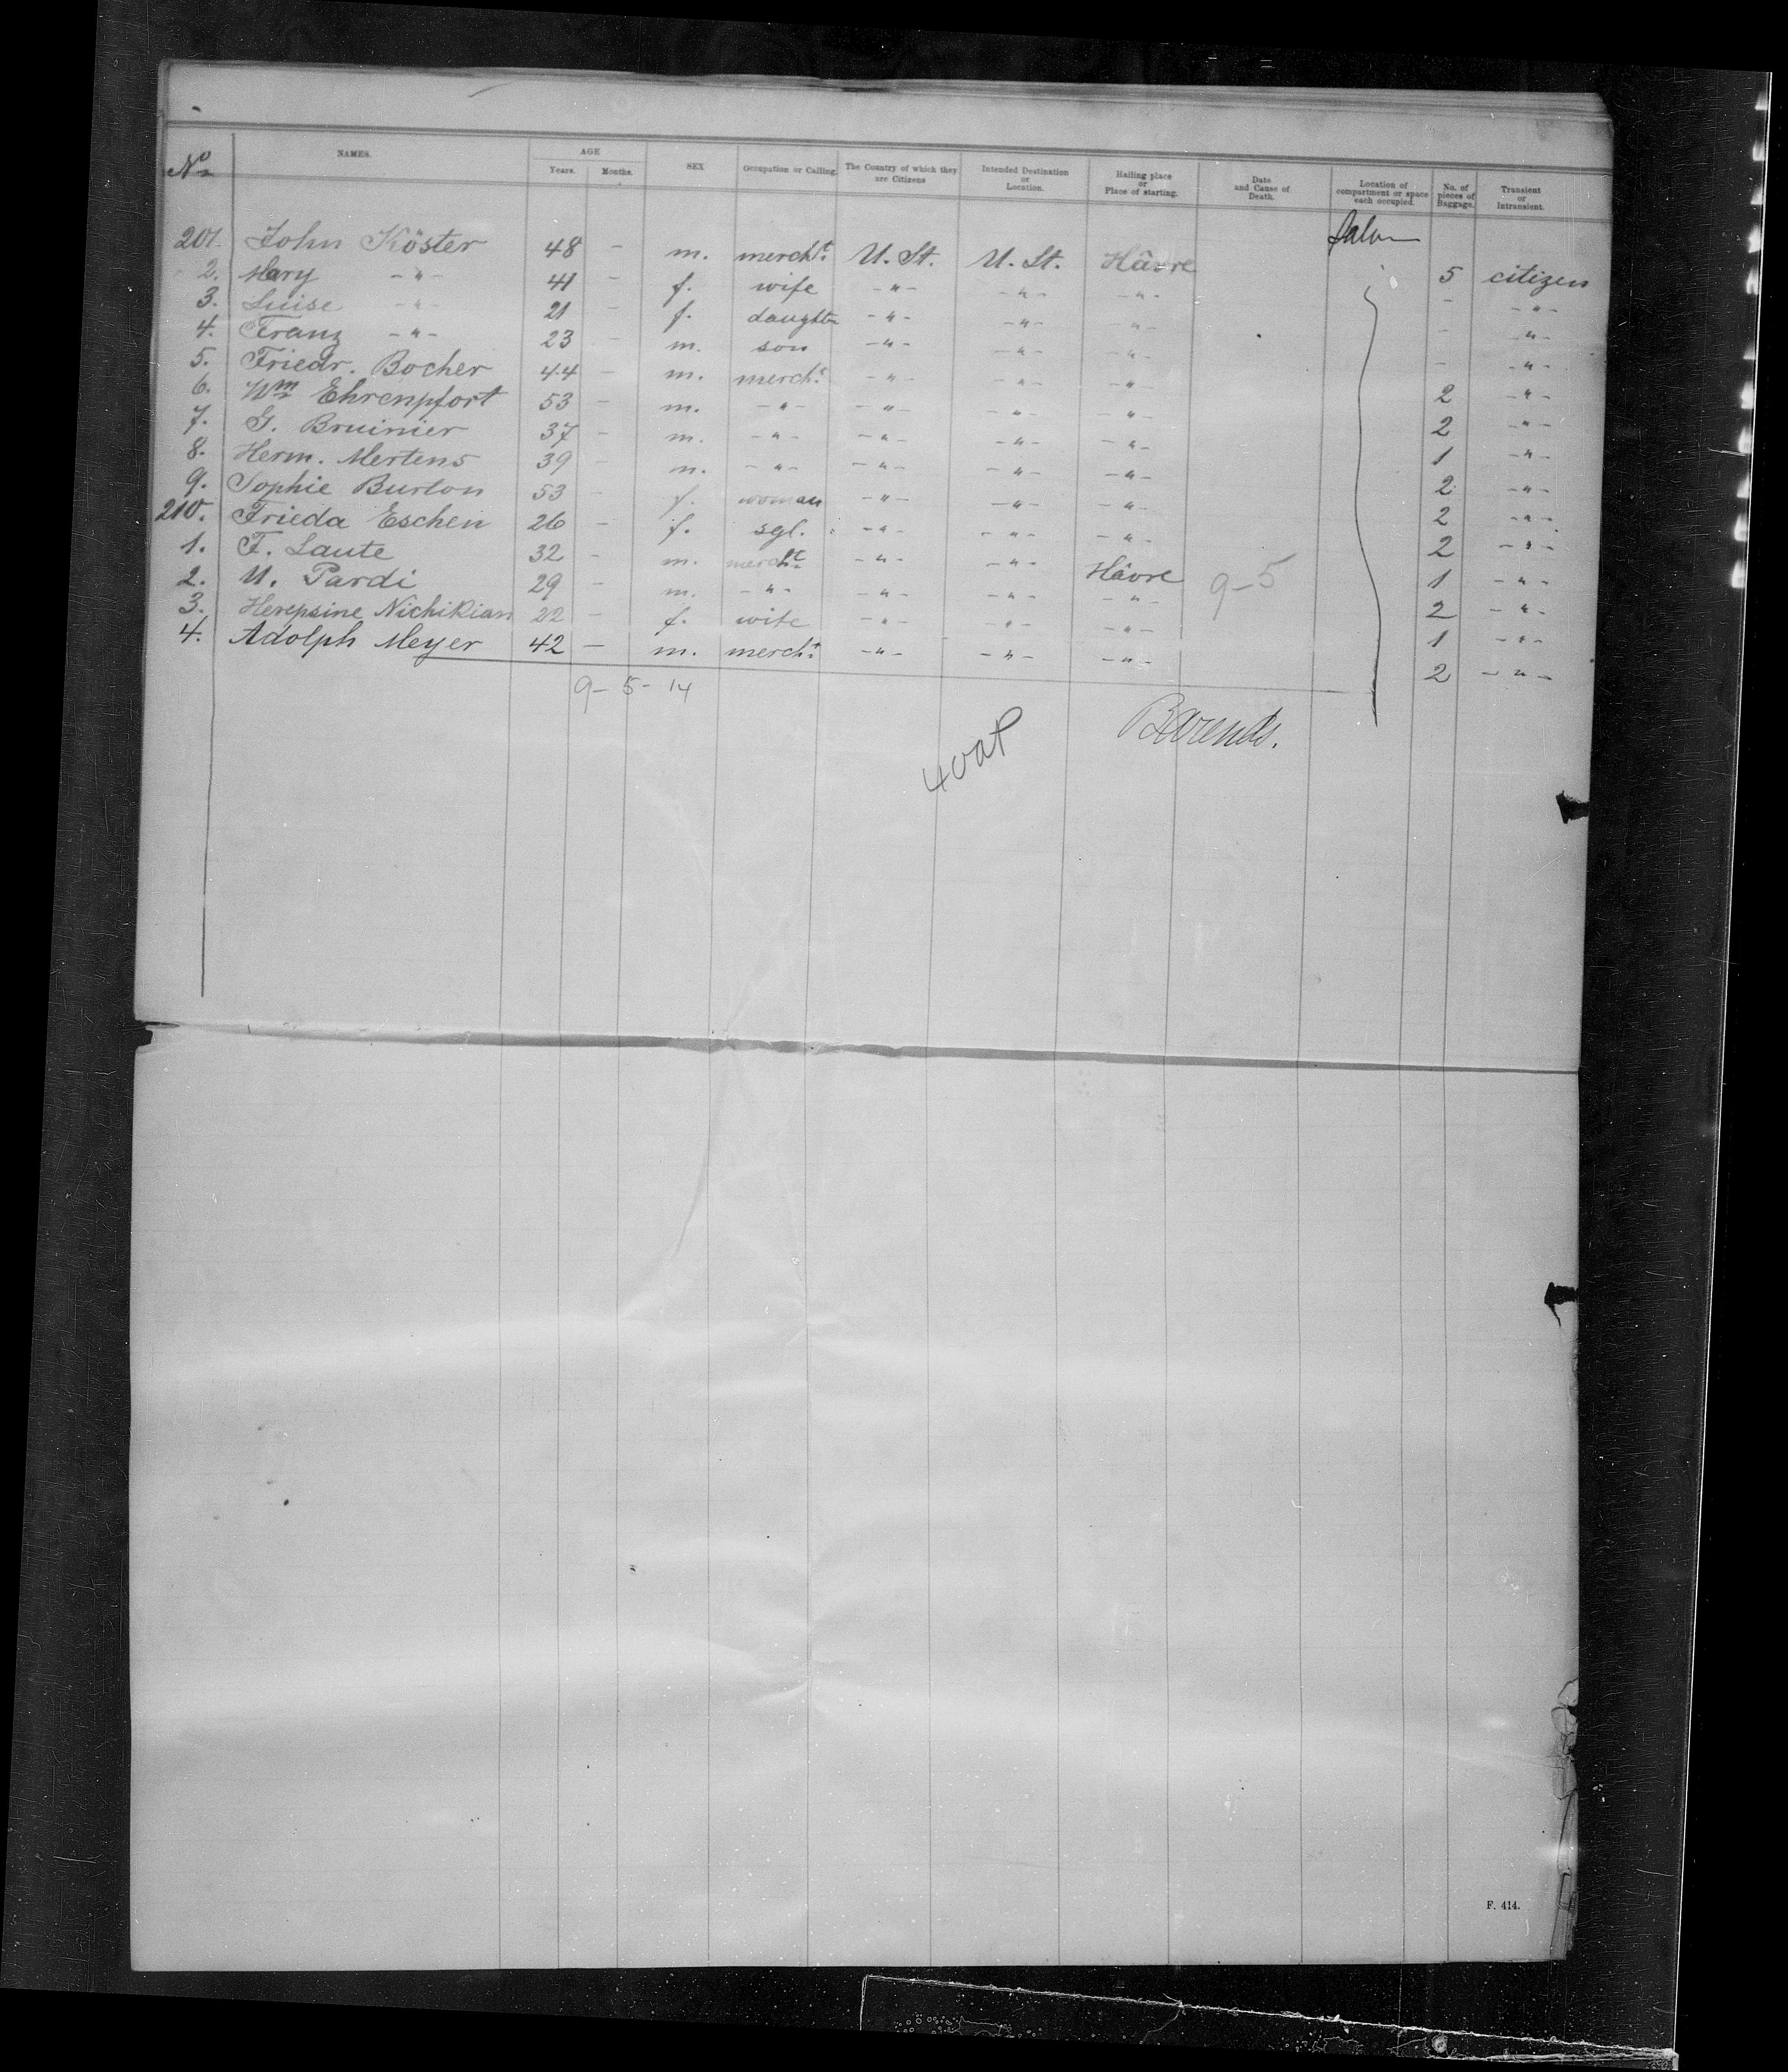 No NAMES. AGE Years. Months. SEX Occupation or Calling. The Country of which they are Citizens Intended Destination or Location. Hailing place or Place of starting. Date and Cause of Death. Location of compartment or space each occupied. No. of pieces of Baggage. Transient or Intransient.
201. John Köster 48 - m. mercht. U. St. U. St. Hâvre Salon 5 citizen
2. Mary -"- 41 - f. wife -"- -"- -"- - -"-
3. Luise -"- 21 - f. daughter -"- -"- -"- - -"-
4. Franz -"- 23 - m. son -"- -"- -"- - -"-
5. Friedr. Bocher 44 - m. mercht. -"- -"- -"- 2 -"-
6. Wm Ehrenpfort 53 - m. -"- -"- -"- -"- 2 -"-
7. G. Bruinier 37 - m. -"- -"- -"- -"- 1 -"-
8. Herm. Mertens 39 - m. -"- -"- -"- -"- 2 -"-
9. Sophie Burton 53 - f. woman -"- -"- -"- 2 -"-
210. Frieda Eschen 26 - f. sgl. -"- -"- -"- 2 -"-
1. F. Laute 32 - m. mercht -"- -"- Hâvre 9-5 1 -"-
2. U. Pardi 29 - m. -"- -"- -"- -"- 2 -"-
3. Herepsine Nichikian 22 - f. wife -"- -"- -"- 1 -"-
4. Adolph Meyer 42 - m. mercht. -"- -"- -"- 2 -"-
9-5-14
Barends.
F. 414.